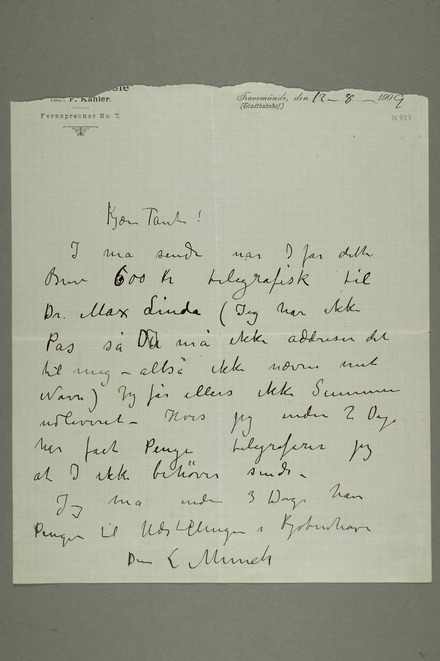 Inh.: F. Kähler.
Fernsprecher No. 7.
Travemünde, den 12 – 8 – 1909
(Stadtbahnhof)
N 957
Kjære Tante!
I må sende når I får dette
Brev 600 Kr telegrafisk til
Dr. Max Linde (Jeg har ikke
Pas så Du må ikke addresere det
til mig – altså ikke nævne mit
Navn) Jeg får ellers ikke Summen
udleveret – Hvis jeg inden 2 Dage
har fået Penge telegraferer jeg
at I ikke behøver sende –
Jeg må inden 3 Dage have
Penger til Udstillingen i Kjøbenhavn
Din E Munch